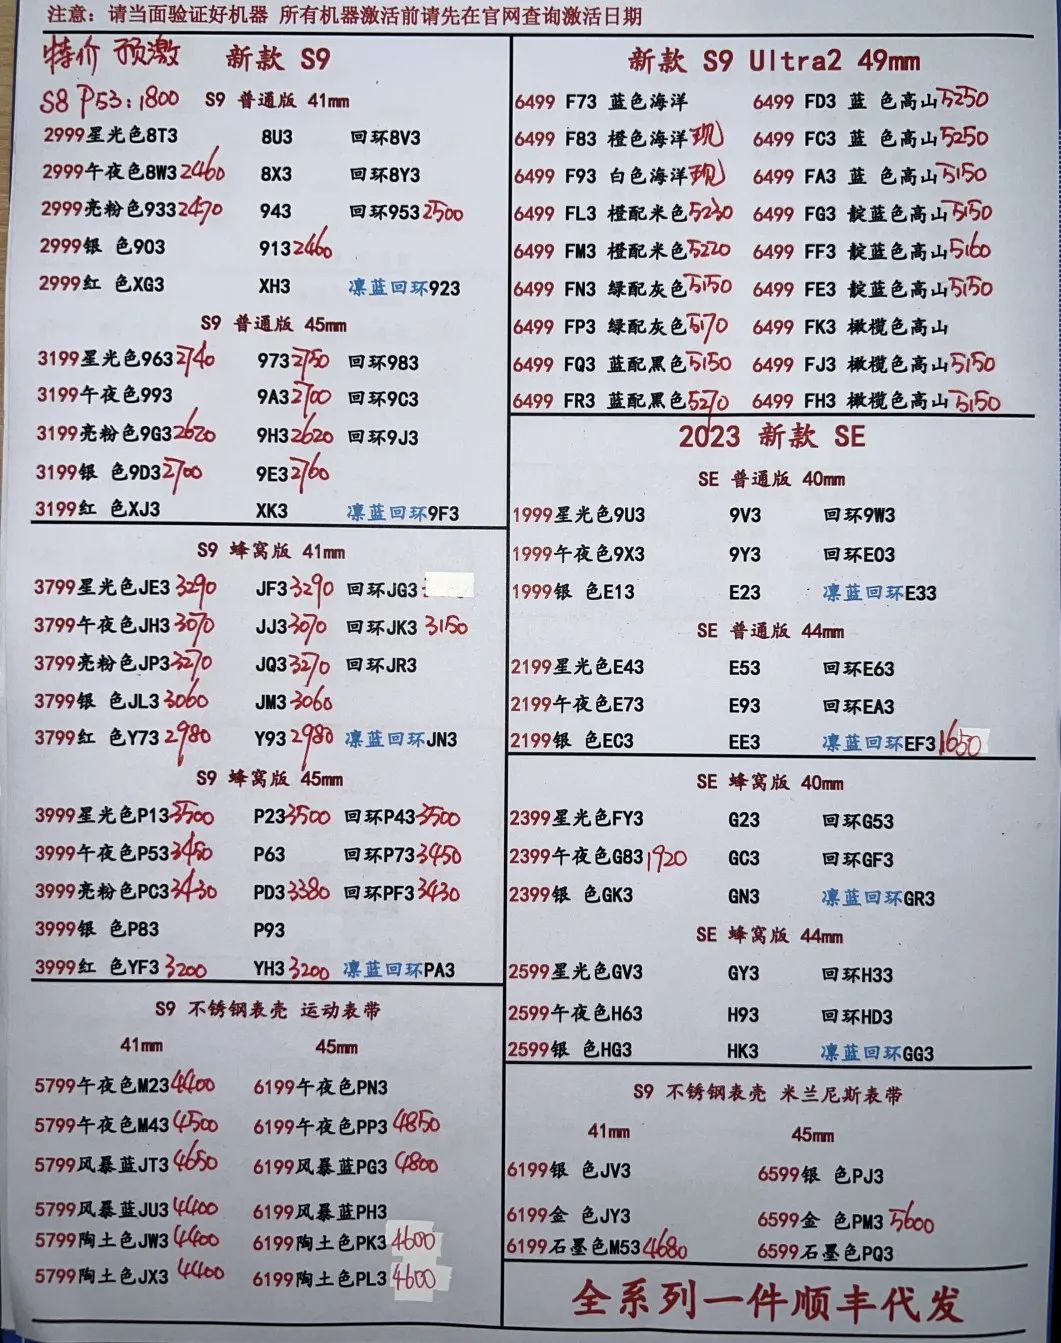 注意：请当面验证好机器 所有机器激活前请先在官网查询激活日期
特价 预激 新款 S9
S8 P53:1800 S9 普通版 41mm
2999星光色8T3 8U3 回环8V3
2999午夜色8W3 2460 8X3 回环8Y3
2999亮粉色933 2470 943 回环953 2500
2999银 色903 913 2460
2999红 色XG3 XH3 凛蓝回环923
S9 普通版 45mm
3199星光色963 2740 973 2750 回环983
3199午夜色993 9A3 2700 回环9C3
3199亮粉色9G3 2620 9H3 2620 回环9J3
3199银 色9D3 2700 9E3 2760
3199红 色XJ3 XK3 凛蓝回环9F3
S9 蜂窝版 41mm
3799星光色JE3 3290 JF3 3290 回环JG3
3799午夜色JH3 3070 JJ3 3070 回环JK3 3150
3799亮粉色JP3 3270 JQ3 3270 回环JR3
3799银 色JL3 3060 JM3 3060
3799红 色Y73 2980 Y93 2980 凛蓝回环JN3
S9 蜂窝版 45mm
3999星光色P13 3500 P23 3500 回环P43 3500
3999午夜色P53 3450 P63 回环P73 3450
3999亮粉色PC3 3430 PD3 3380 回环PF3 3430
3999银 色P83 P93
3999红 色YF3 3200 YH3 3200 凛蓝回环PA3
S9 不锈钢表壳 运动表带
41mm 45mm
5799午夜色M23 4400 6199午夜色PN3
5799午夜色M43 4500 6199午夜色PP3 4850
5799风暴蓝JT3 4650 6199风暴蓝PG3 4800
5799风暴蓝JU3 4400 6199风暴蓝PH3
5799陶土色JW3 4400 6199陶土色PK3 4600
5799陶土色JX3 4400 6199陶土色PL3 4600
新款 S9 Ultra2 49mm
6499 F73 蓝色海洋 6499 FD3 蓝 色高山 5250
6499 F83 橙色海洋 现 6499 FC3 蓝 色高山 5250
6499 F93 白色海洋 现 6499 FA3 蓝 色高山 5150
6499 FL3 橙配米色 5230 6499 FG3 靛蓝色高山 5150
6499 FM3 橙配米色 5220 6499 FF3 靛蓝色高山 5160
6499 FN3 绿配灰色 5150 6499 FE3 靛蓝色高山 5150
6499 FP3 绿配灰色 5170 6499 FK3 橄榄色高山
6499 FQ3 蓝配黑色 5150 6499 FJ3 橄榄色高山 5150
6499 FR3 蓝配黑色 5270 6499 FH3 橄榄色高山 5150
2023 新款 SE
SE 普通版 40mm
1999星光色9U3 9V3 回环9W3
1999午夜色9X3 9Y3 回环E03
1999银 色E13 E23 凛蓝回环E33
SE 普通版 44mm
2199星光色E43 E53 回环E63
2199午夜色E73 E93 回环EA3
2199银 色EC3 EE3 凛蓝回环EF3 1650
SE 蜂窝版 40mm
2399星光色FY3 G23 回环G53
2399午夜色G83 1920 GC3 回环GF3
2399银 色GK3 GN3 凛蓝回环GR3
SE 蜂窝版 44mm
2599星光色GV3 GY3 回环H33
2599午夜色H63 H93 回环HD3
2599银 色HG3 HK3 凛蓝回环GG3
S9 不锈钢表壳 米兰尼斯表带
41mm 45mm
6199银 色JV3 6599银 色PJ3
6199金 色JY3 6599金 色PM3 5600
6199石墨色M53 4680 6599石墨色PQ3
全系列一件顺丰代发